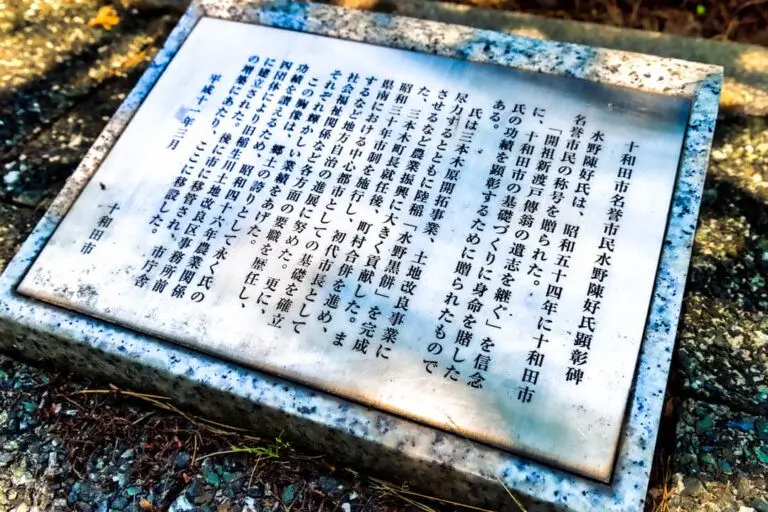 十和田市名誉市民水野陳好氏顕彰碑
水野陳好氏は、昭和五十四年に十和田市
名誉市民の称号を贈られた。
「開祖新渡戸傳翁の遺志を継ぐ」を信念
に、十和田市の基礎づくりに身命を賭した
氏の功績を顕彰するために贈られたもので
ある。
氏は三本木原開拓事業、土地改良事業に
尽力するとともに陸稲「水野黒餅」を完成
させるなど農業振興に大きく貢献した。ま
た、三本木町長就任後、町村合併を進め、
昭和三十年市制を施行し、初代市長として
県南における中心都市としての基礎を確立
するなど地方自治の進展に努めた。更に、
社会福祉関係など各方面の要職を歴任し、
それぞれ輝かしい業績をあげた。
この胸像は、郷土の誇りとして永く氏の
功績を讃えるため、昭和四十六年農業関係
四団体により旧稲生川土地改良区事務所前
に建立された。後に市に移管され、市庁舎
の増築にあたり、ここに移設した。
平成十一年三月
十和田市